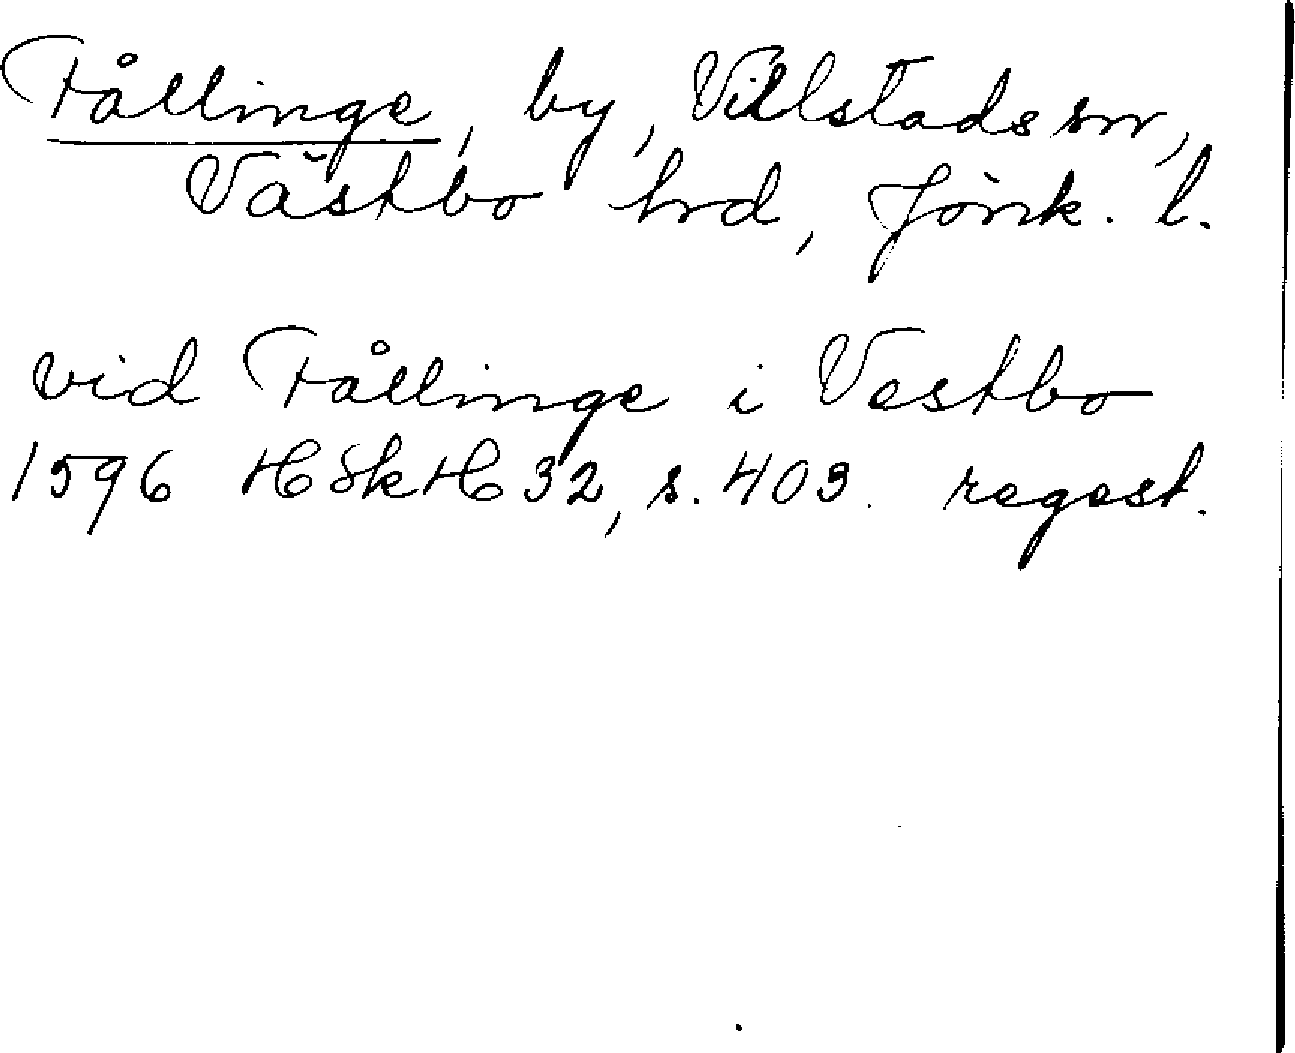 Fållinge, by, Villstads sn,
Västbo hrd, Jönk. l.
vid Fållinge i Vestbo
1596 HSkH 32, s. 403. regest.